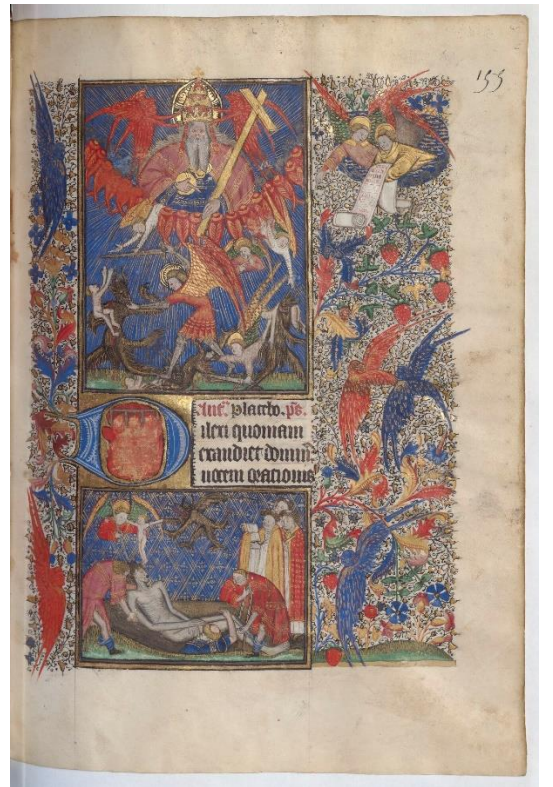 155
Ant. placebo. ps.
ilexi quoniam
exaudiet domin
vocem orationis